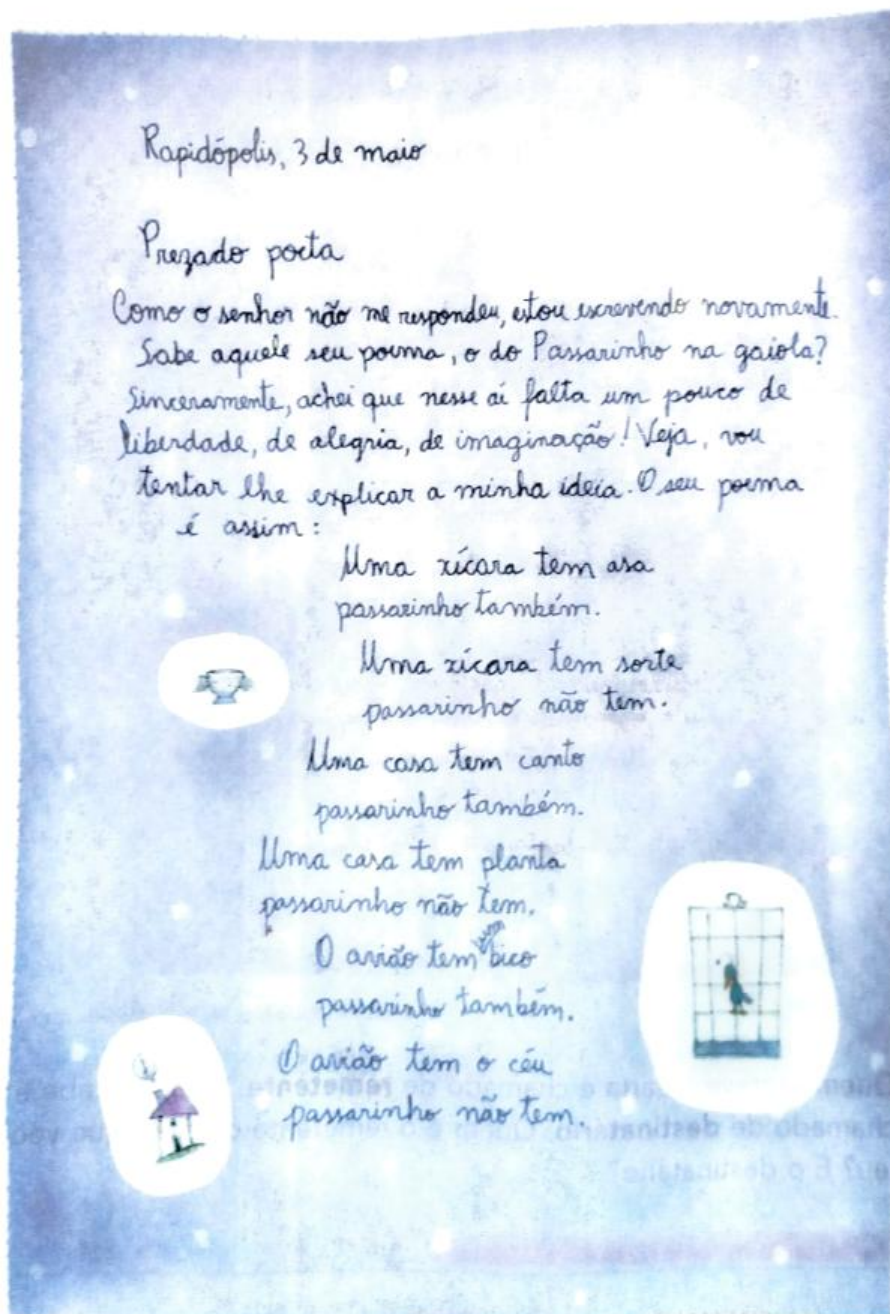 Rapidópolis, 3 de maio
Prezado poeta
Como o senhor não me respondeu, estou escrevendo novamente.
Sabe aquele seu poema, o do Passarinho na gaiola?
Sinceramente, achei que nesse aí falta um pouco de
liberdade, de alegria, de imaginação! Veja, vou
tentar lhe explicar a minha ideia. O seu poema
é assim:
Uma xícara tem asa
passarinho também.
Uma xícara tem sorte
passarinho não tem.
Uma casa tem canto
passarinho também.
Uma casa tem planta
passarinho não tem.
O avião tem bico
passarinho também.
O avião tem o céu
passarinho não tem.